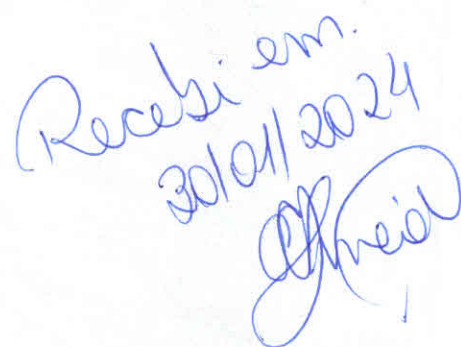 Recebi em.
30/01/2024